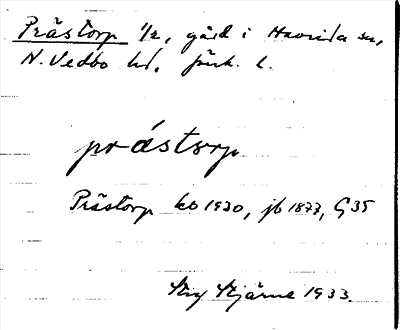 Prästorp 1/2, gård i Haurida sn,
N. Vedbo hd, Jönk. l.
prástorp
Prästorp kb 1930, jb 1877, G 35
Stig Stjärne 1933.